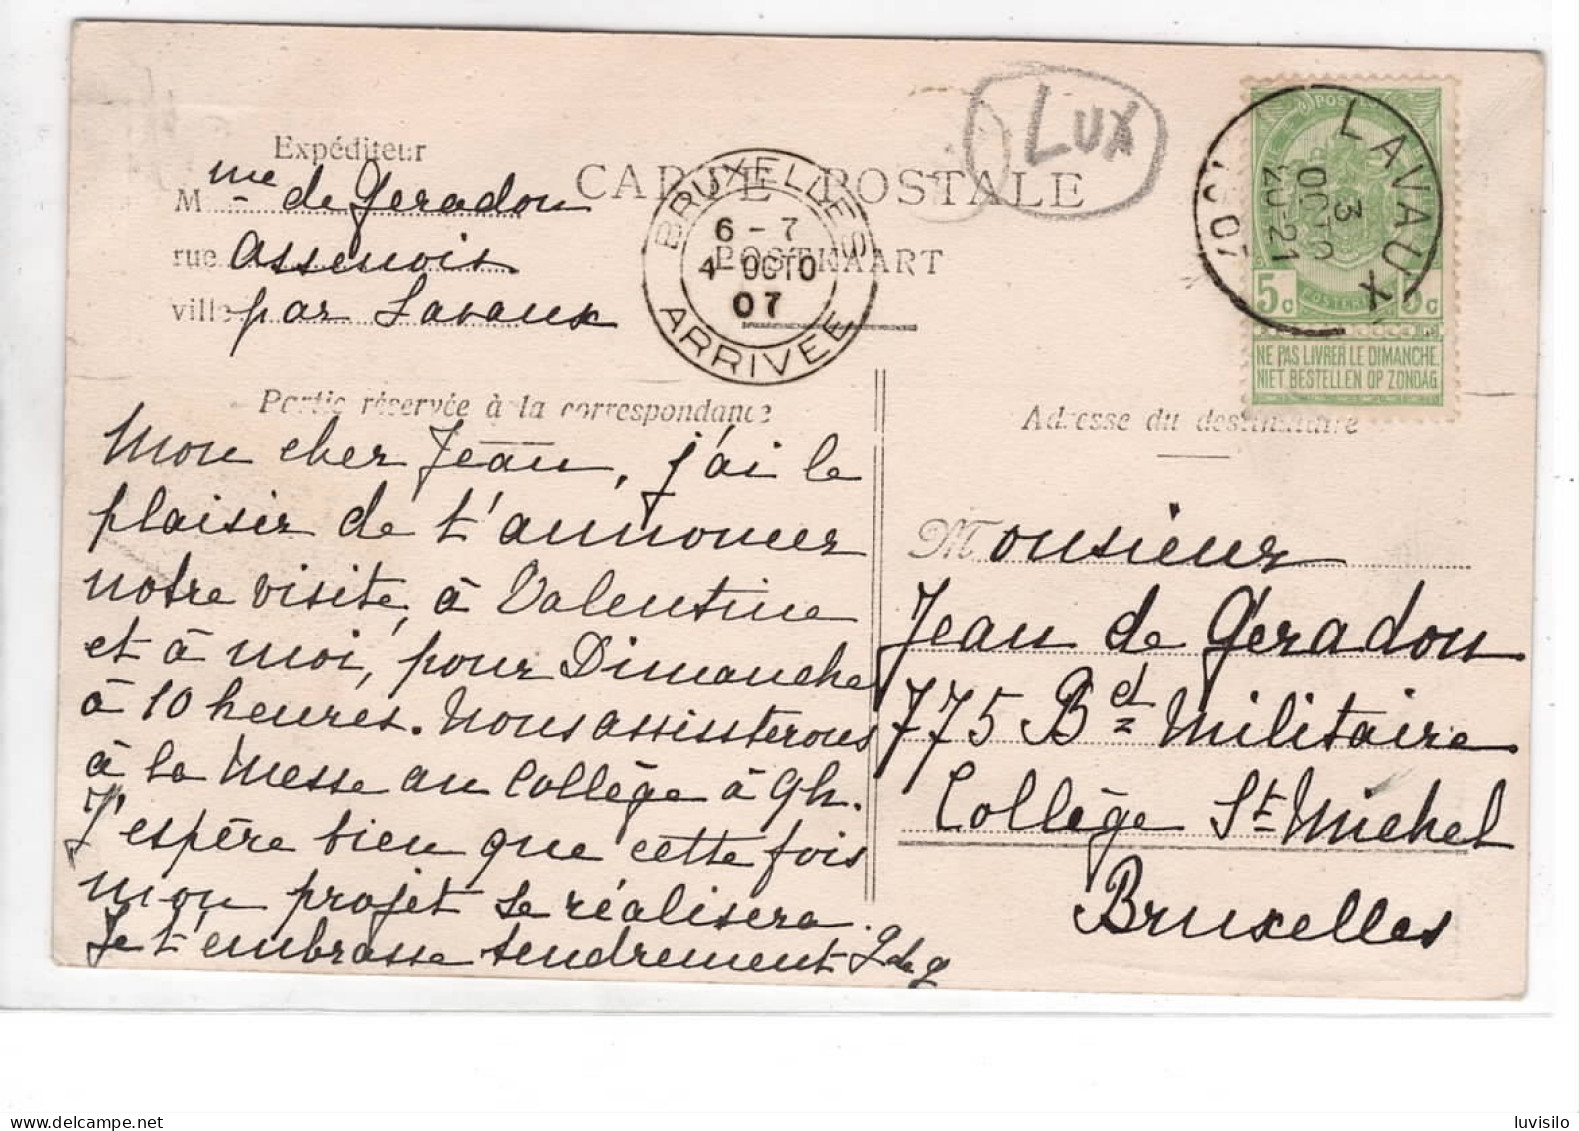 Expéditeur
Mme de Geradon
rue Assenois
ville par Lavaux
CARTE POSTALE
POSTKAART
LUX
BRUXELLES
6 - 7
4 OCTO
07
ARRIVEE
LAVAUX
3
OCTO
20-21
1907
POSTE
5c 5c
POSTERIJ
NE PAS LIVRER LE DIMANCHE
NIET BESTELLEN OP ZONDAG
Partie réservée à la correspondance
Mon cher Jean, j'ai le
plaisir de t'annoncer
notre visite, à Valentine
et à moi, pour Dimanche
à 10 heures. Nous assissterons
à la Messe au Collège à 9h.
J'espère bien que cette fois
mon projet se réalisera.
Je t'embrasse tendrement
Adresse du destinataire
Monsieur
Jean de Geradon
775 Bd Militaire
Collège St Michel
Bruxelles
luvisilo